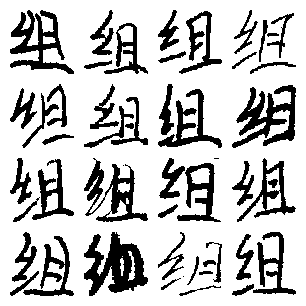 组组组组
组组组组
组组组组
组组组组